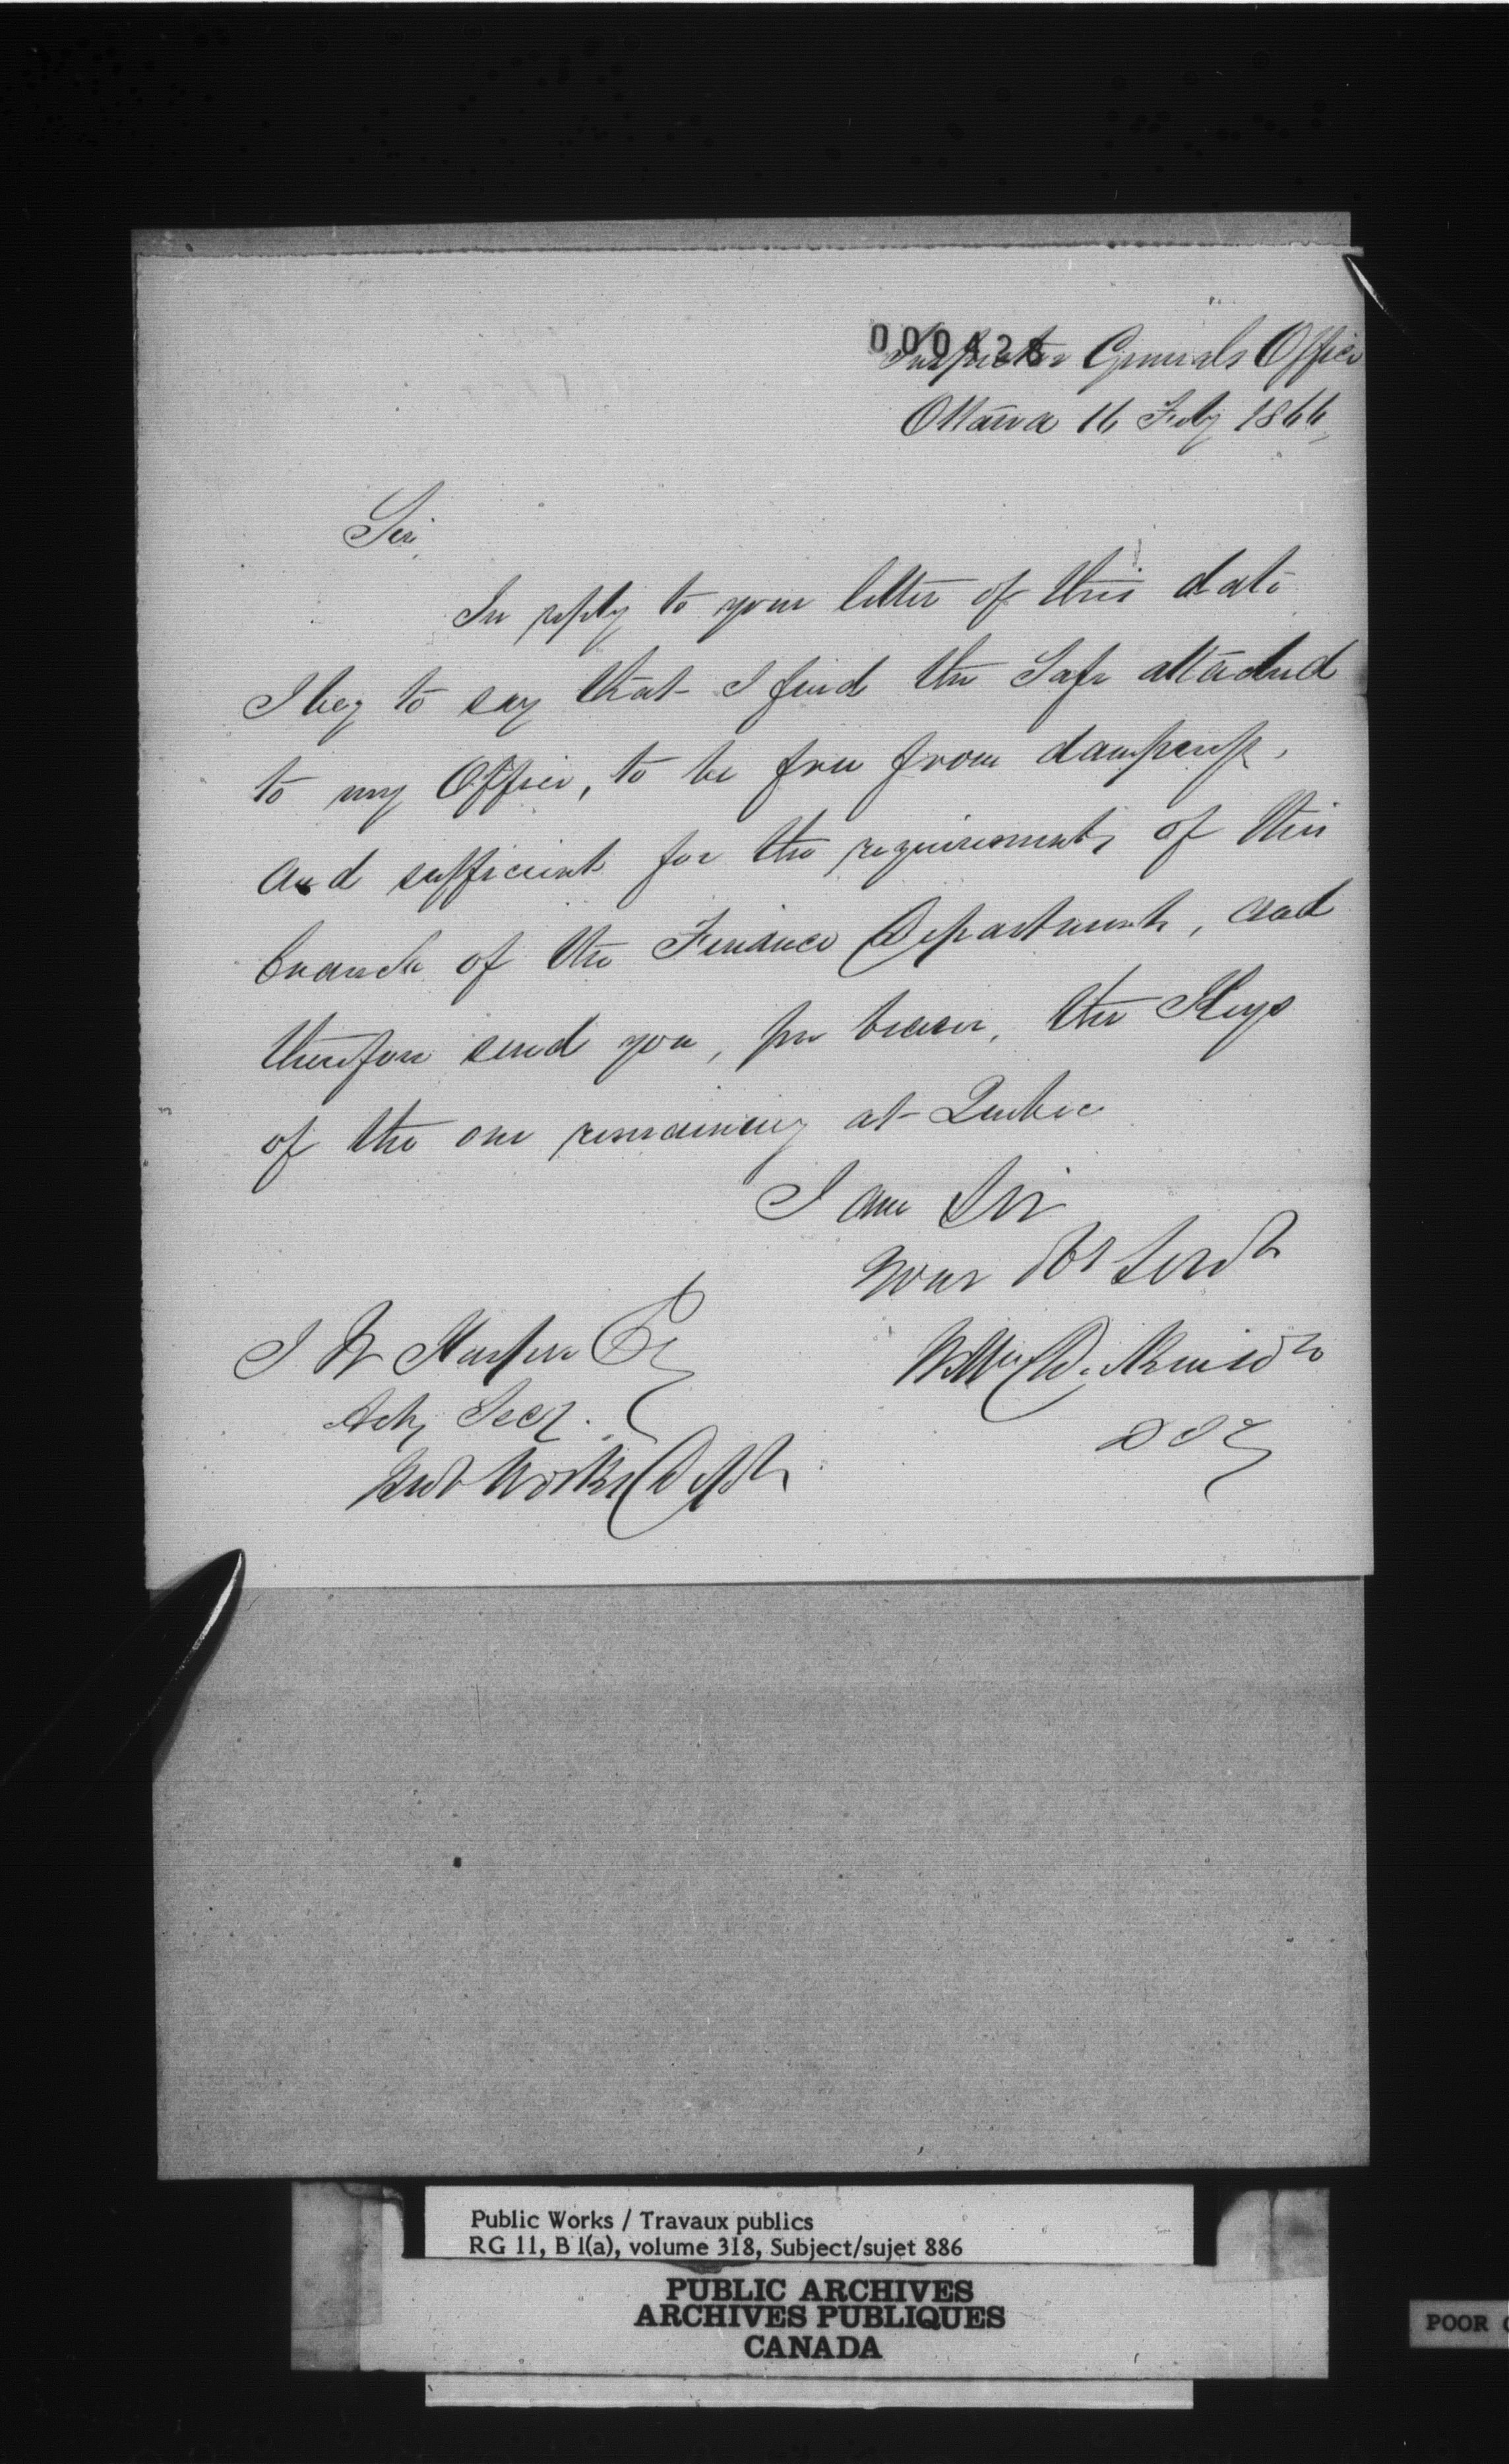 000428
Inspector Generals Office
Ottawa 16 Feby 1866
Sir
In reply to your letter of this date
I beg to say that I find the Safe attached
to my Office, to be free from dampness,
and sufficient for the requirements of this
branch of the Finance Department, and
therefore send you, per bearer, the Keys
of the one remaining at Quebec
I am Sir
Your Ob Servt
Wm Dickinson
D I G
J W Harper Esq
Actg Secy.
Pub Works Dept
Public Works / Travaux publics
RG 11, B 1(a), volume 318, Subject/sujet 886
PUBLIC ARCHIVES
ARCHIVES PUBLIQUES
CANADA
POOR